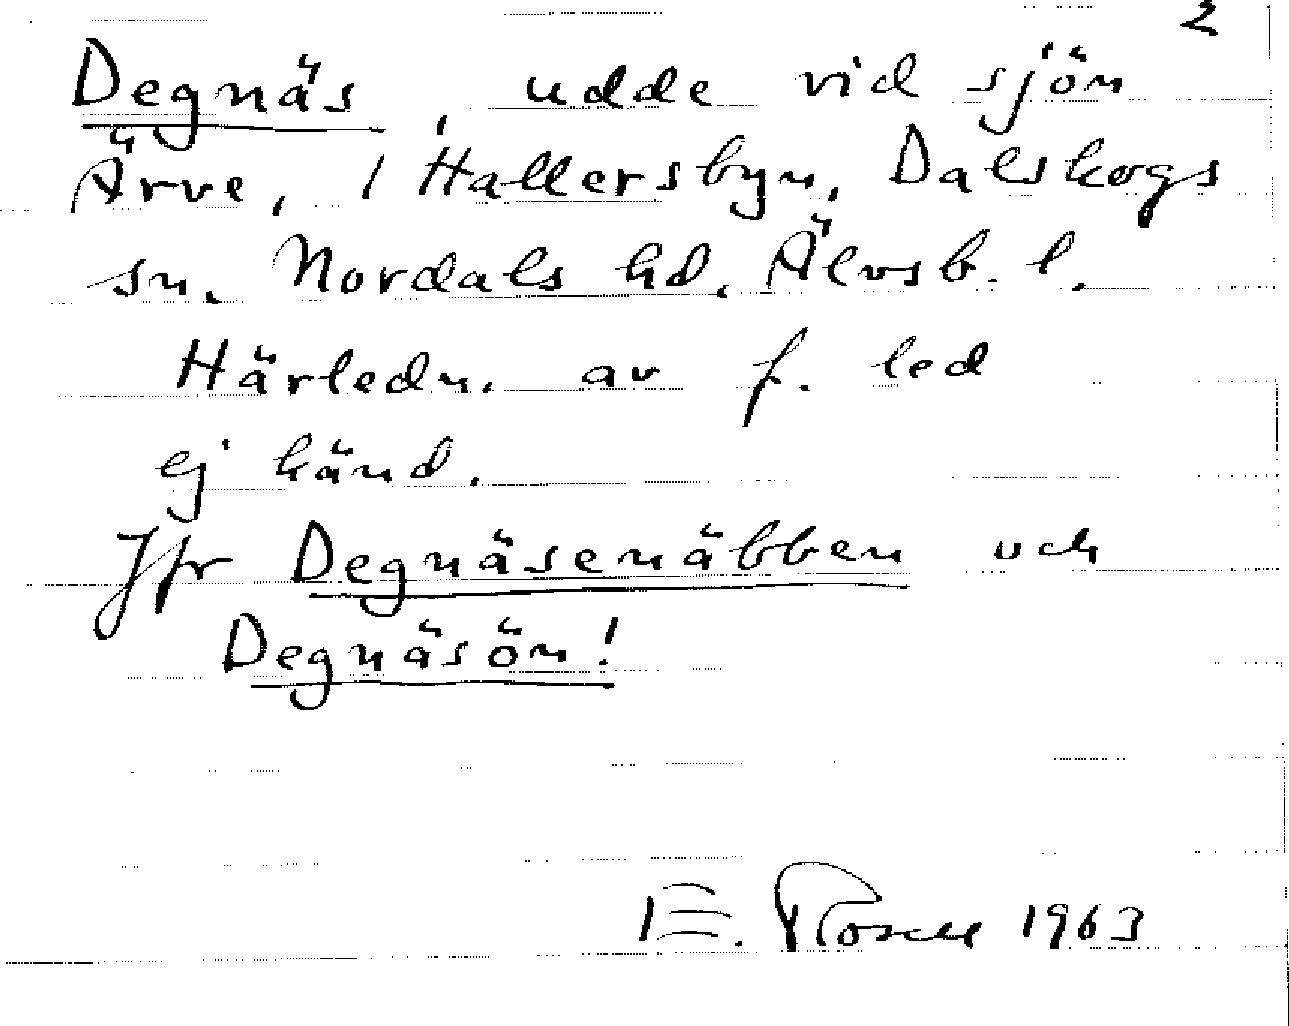 2
Degnäs, udde vid sjön
Ärve, i Hallersbyn, Dalskogs
sn. Nordals hd. Älvsb. l.
Härledn. av f. led
ej känd.
Jfr Degnäsenäbben och
Degnäsön!
E. Rosell 1963